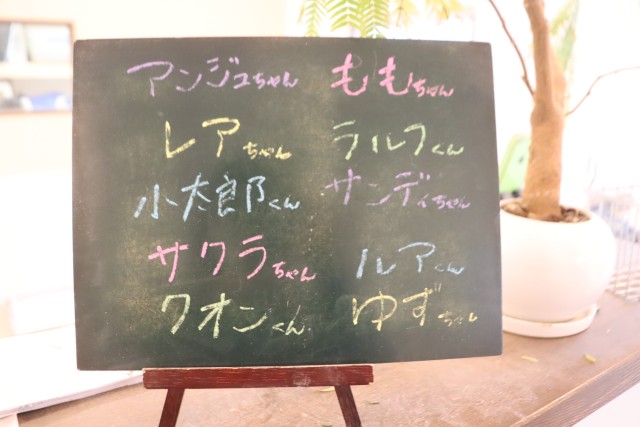 アンジュちゃん ももちゃん
レアちゃん ラルフくん
小太郎くん サンディちゃん
サクラちゃん ルアくん
クオンくん ゆずちゃん